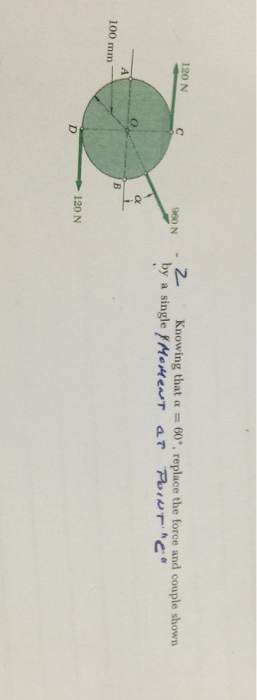 120 N
C
960 N
A
O
α
B
100 mm
D
120 N
- 2 Knowing that α = 60°, replace the force and couple shown
by a single MOMENT AT POINT "C"